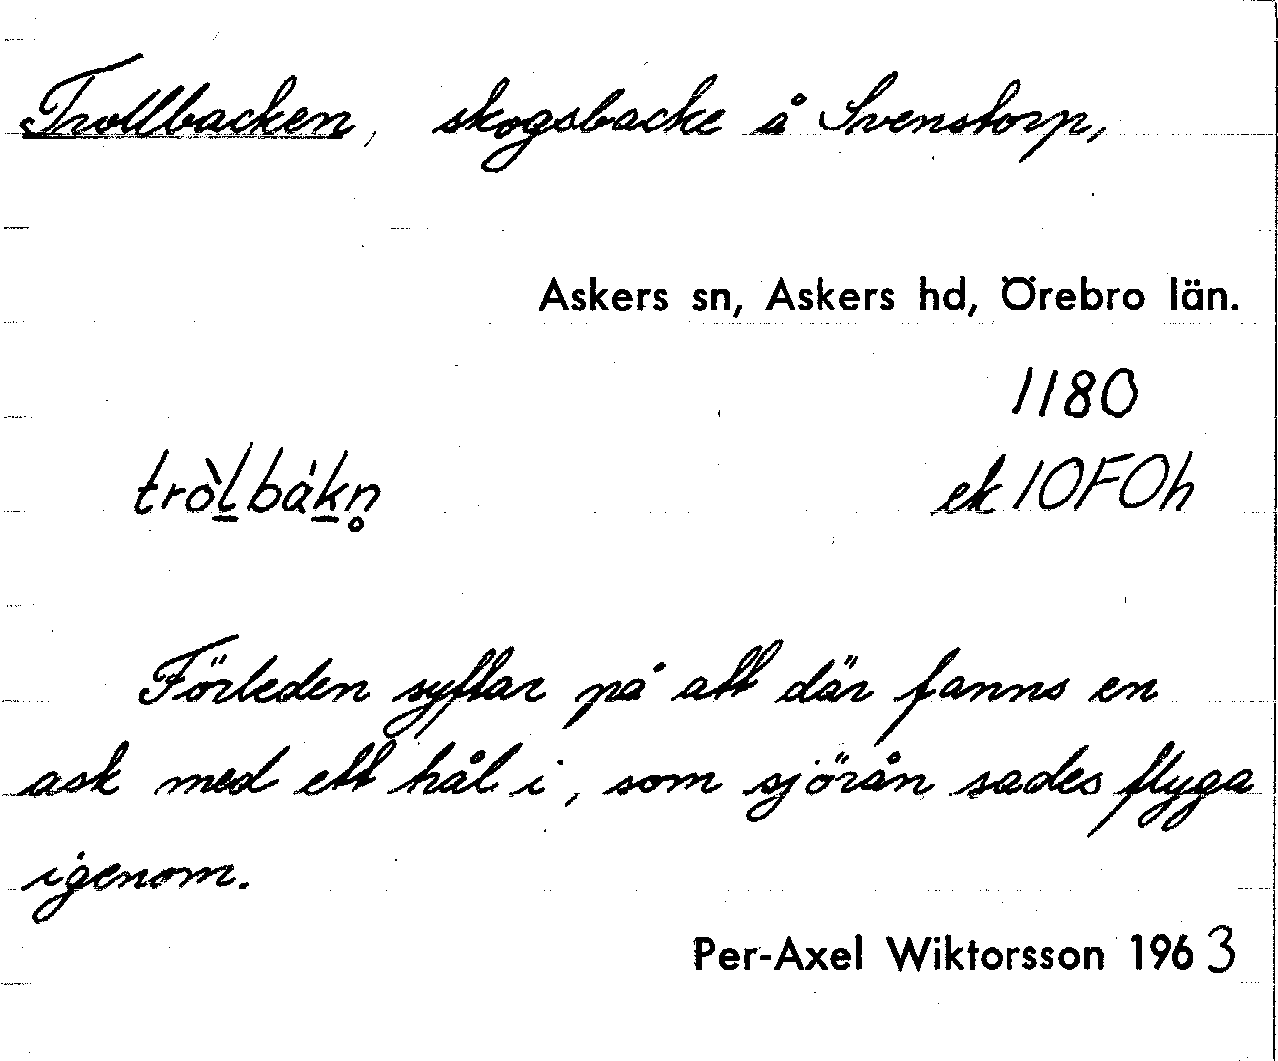 Trollbacken, skogsbacke å Svenstorp,
Askers sn, Askers hd, Örebro län.
1180
tròl̠bák̠n̥ ek 10F0h
Förleden syftar på att där fanns en
ask med ett hål i, som sjörån sades flyga
igenom.
Per-Axel Wiktorsson 1963